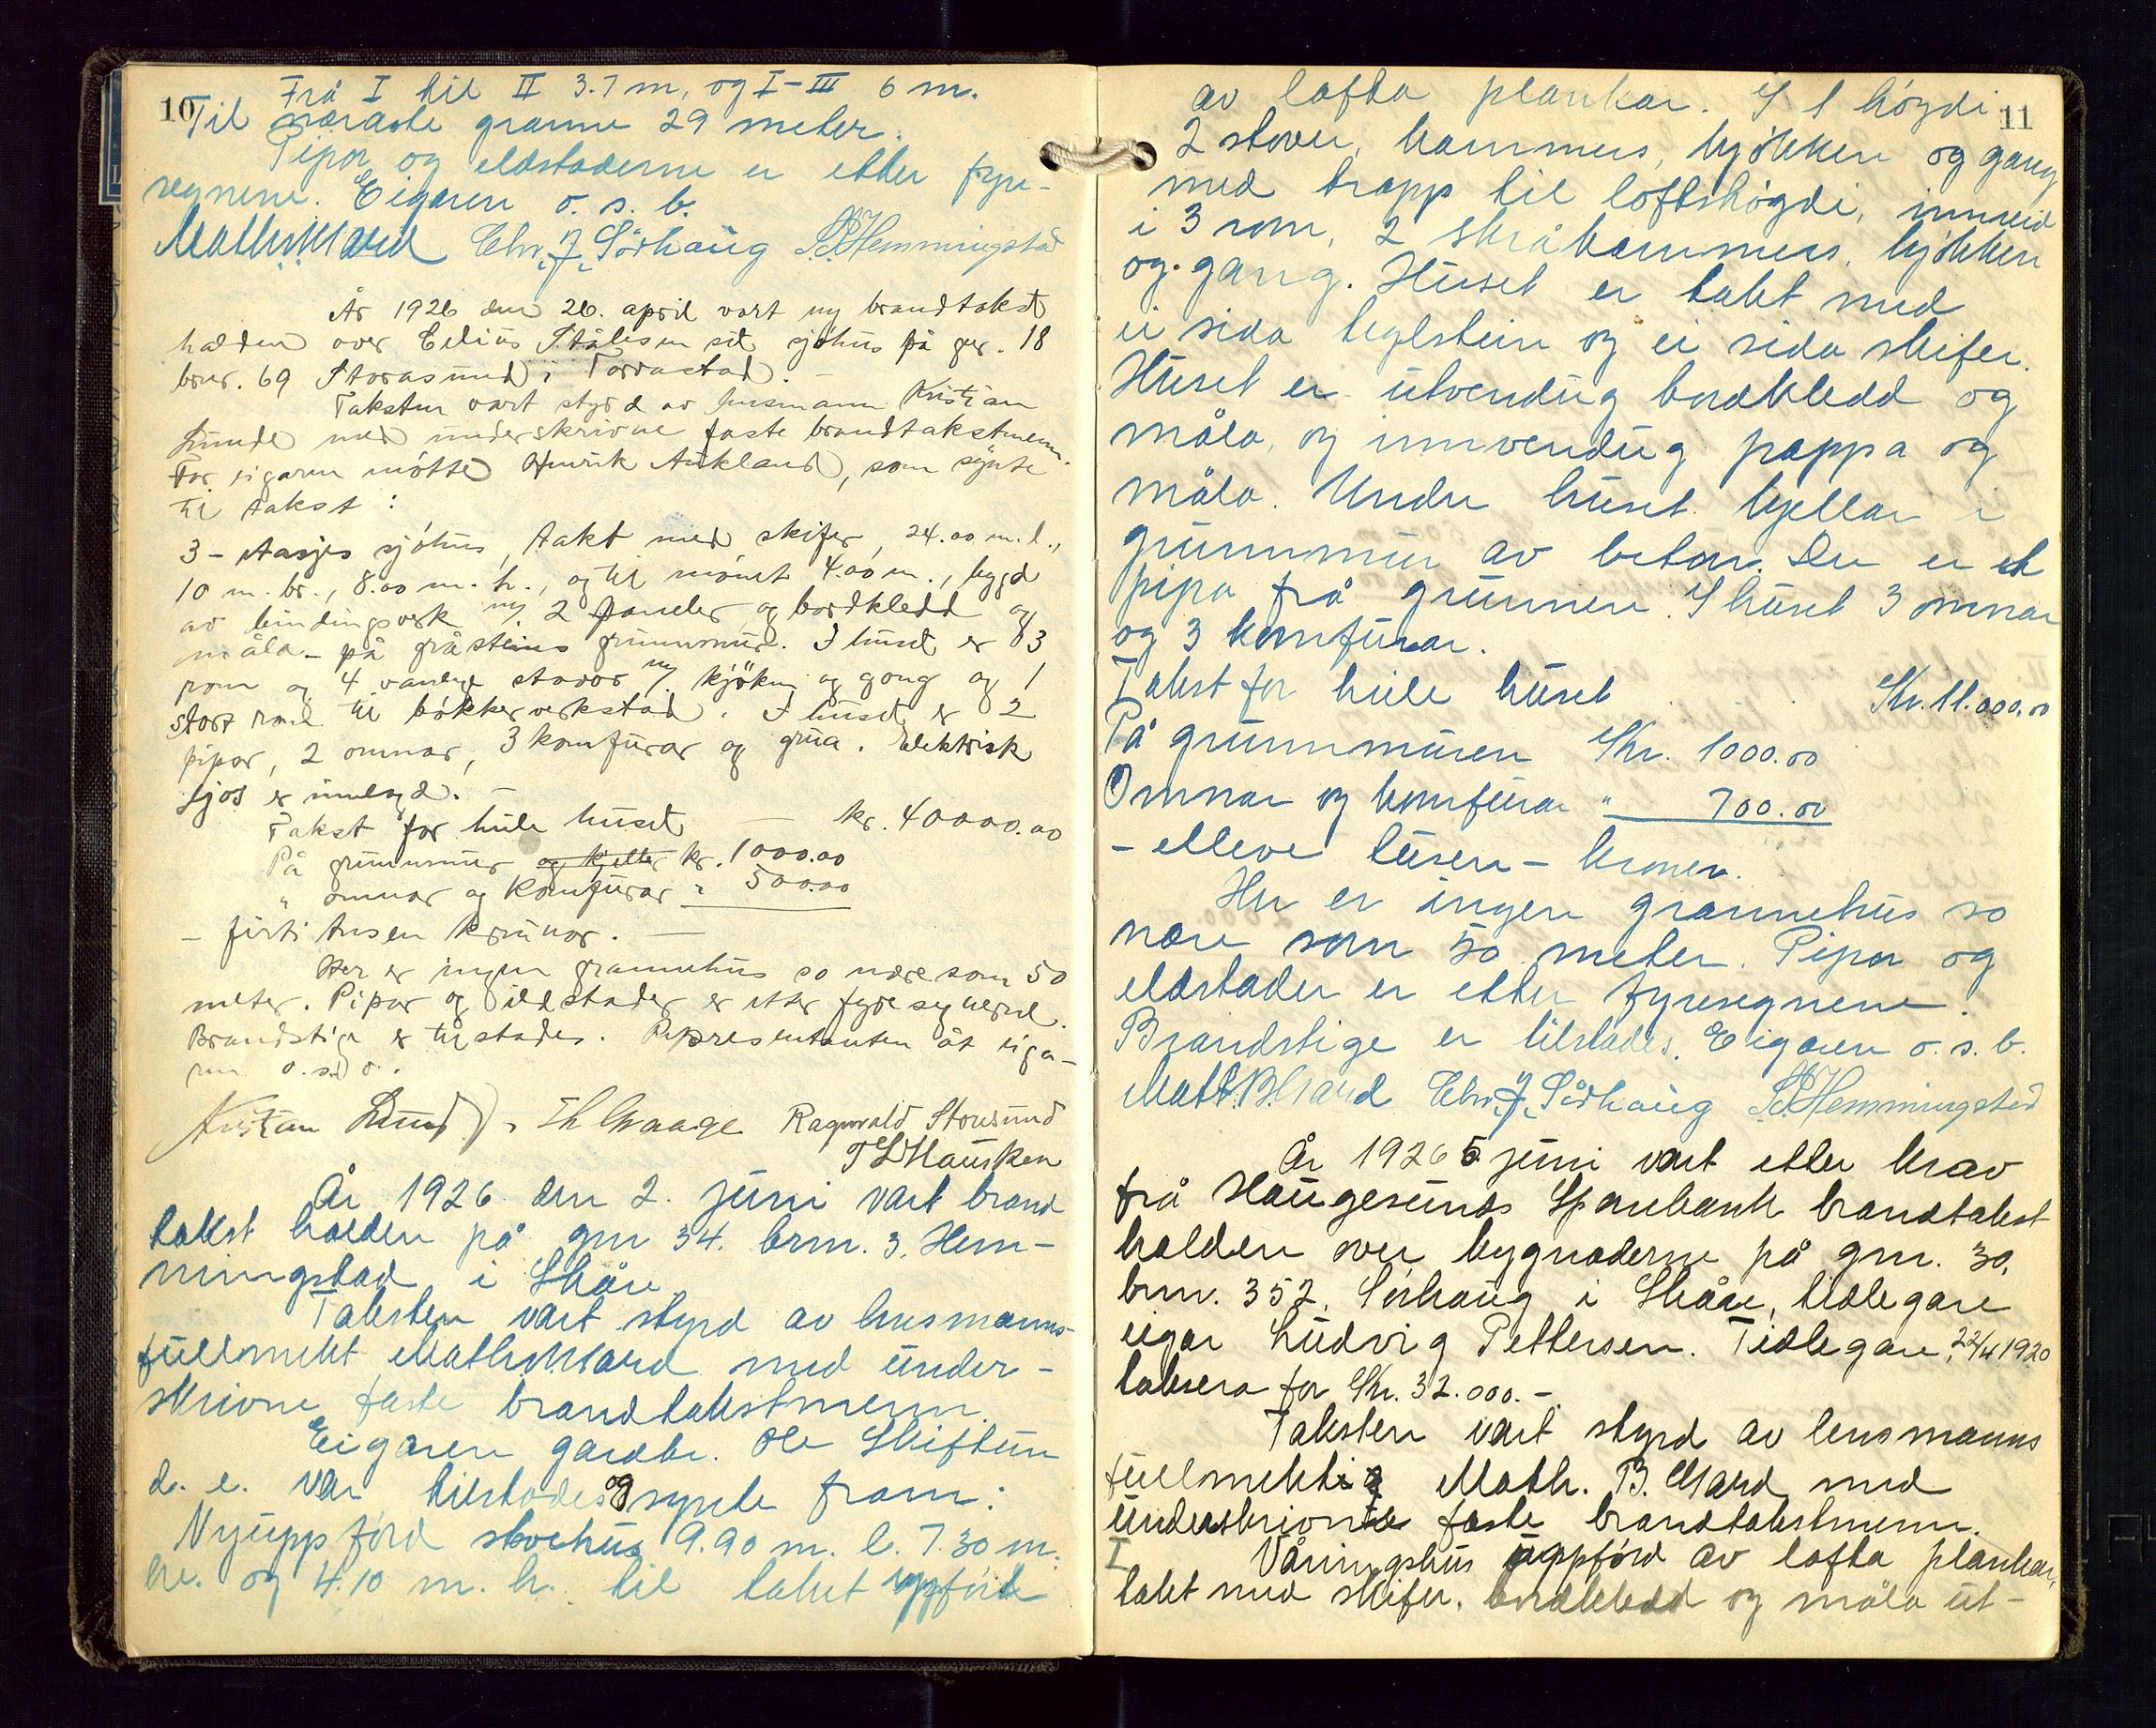 10
Frå I til II 3.7 m, og I-III 6 m.
Til næraste granne 29 meter.
Pipor og eldstaderne er etter fyre-
segnene. Eigaren o. s. b.
Chr. J. Sörhaug S. Hemmingstad
År 1926 den 26. april vart ny brandtakst
halden over Edius Ståle​sen sit sjöhus på gnr. 18
bnr. 69 Storasund i Torvastad. -
Taksten vart styrd av lensmann Kristian
Lunde med underskrivne faste brandtakstmenn.
For eigaren mötte Henrik Aukland, som synte
til takst:
3-etasjes sjöhus, takt med skifer, 24.00 m. l.,
10 m. br., 8.00 m. h., og til mönet 4.00 m., bygd
av bindingsverk m/ 2 paneler og bordkledd og
måla - på gråsteins grunnmur. I huset er 3
rom og 4 vanlige stovor m/ kjöken og gong og 1
stort rom til bökkerverkstad. I huset er 2
pipor, 2 omnar, 3 komfurar og grua. Elektrisk
ljos er innlagd. -
Takst for heile huset - kr. 40000.00
På grunnmur og kjeller kr. 1000.00
" omnar og komfurar " 500.00
- firti tusen krunor. -
Her er ingen grannehus so nære som 50
meter. Pipor og eldstader er etter fyresegnerne.
Brandstige er tilstades. Representanten åt eiga-
ren o. s. b.
Kristian Lunde. Th Waage Ragnvald Storesund
T L Hausken
År 1926 den 2. juni vart brand
takst halden på gnr 34. brnr. 3. Hem-
mingstad i Skåre.
Taksten vart styrd av lensmanns-
fullmekt Math. B. Aard med under-
skrivne faste brandtakstmenn.
Eigaren gardbr. Ole Skiftun
d. e. var tilstades og synte fram:
Nyuppförd stovehus 9.90 m. l. 7.30 m.
br. og 4.10 m. h. til taket uppfört
11
av lafta plankar. I 1 högdi
2 stover, kammers, kjökken og gang
med trapp til loftshögdi, innreid
i 3 rom, 2 skråkammers, kjökken
og gang. Huset er takt med
ei sida teglstein og ei sida skifer.
Huset er utvendig bordkledd og
måla, og innvendig pappa og
måla. Under huset kjellar i
grunnmur av beton. Der er et
pipa frå grunnen. I huset 3 omnar
og 3 komfurar.
Takst for heile huset Kr. 11.000.00
På grunnmuren Kr. 1000.00
Omnar og komfurar " 700.00
- elleve tusen - kroner.
Her er ingen grannehus so
nære som 50 meter. Pipor og
eldstader er etter fyresegnene.
Brandstige er tilstades. Eigaren o. s. b.
Chr. J. Sörhaug S. Hemmingstad
År 1926 5 juni vart etter krav
frå Haugesunds Sparebank brandtakst
halden over bygnaderne på gnr. 30,
brnr. 352, Sörhaug i Skåre, tidlegare
eigar Ludvig Pettersen. Tidlegare 22/4 1920
taksera for Kr. 32.000.-
Taksten vart styrd av lensmanns
fullmektig Math. B. Aard med
underskrivne faste brandtakstmenn.
I Våningshus uppförd av lafta plankar,
takt med skifer, bordkledd og måla ut-